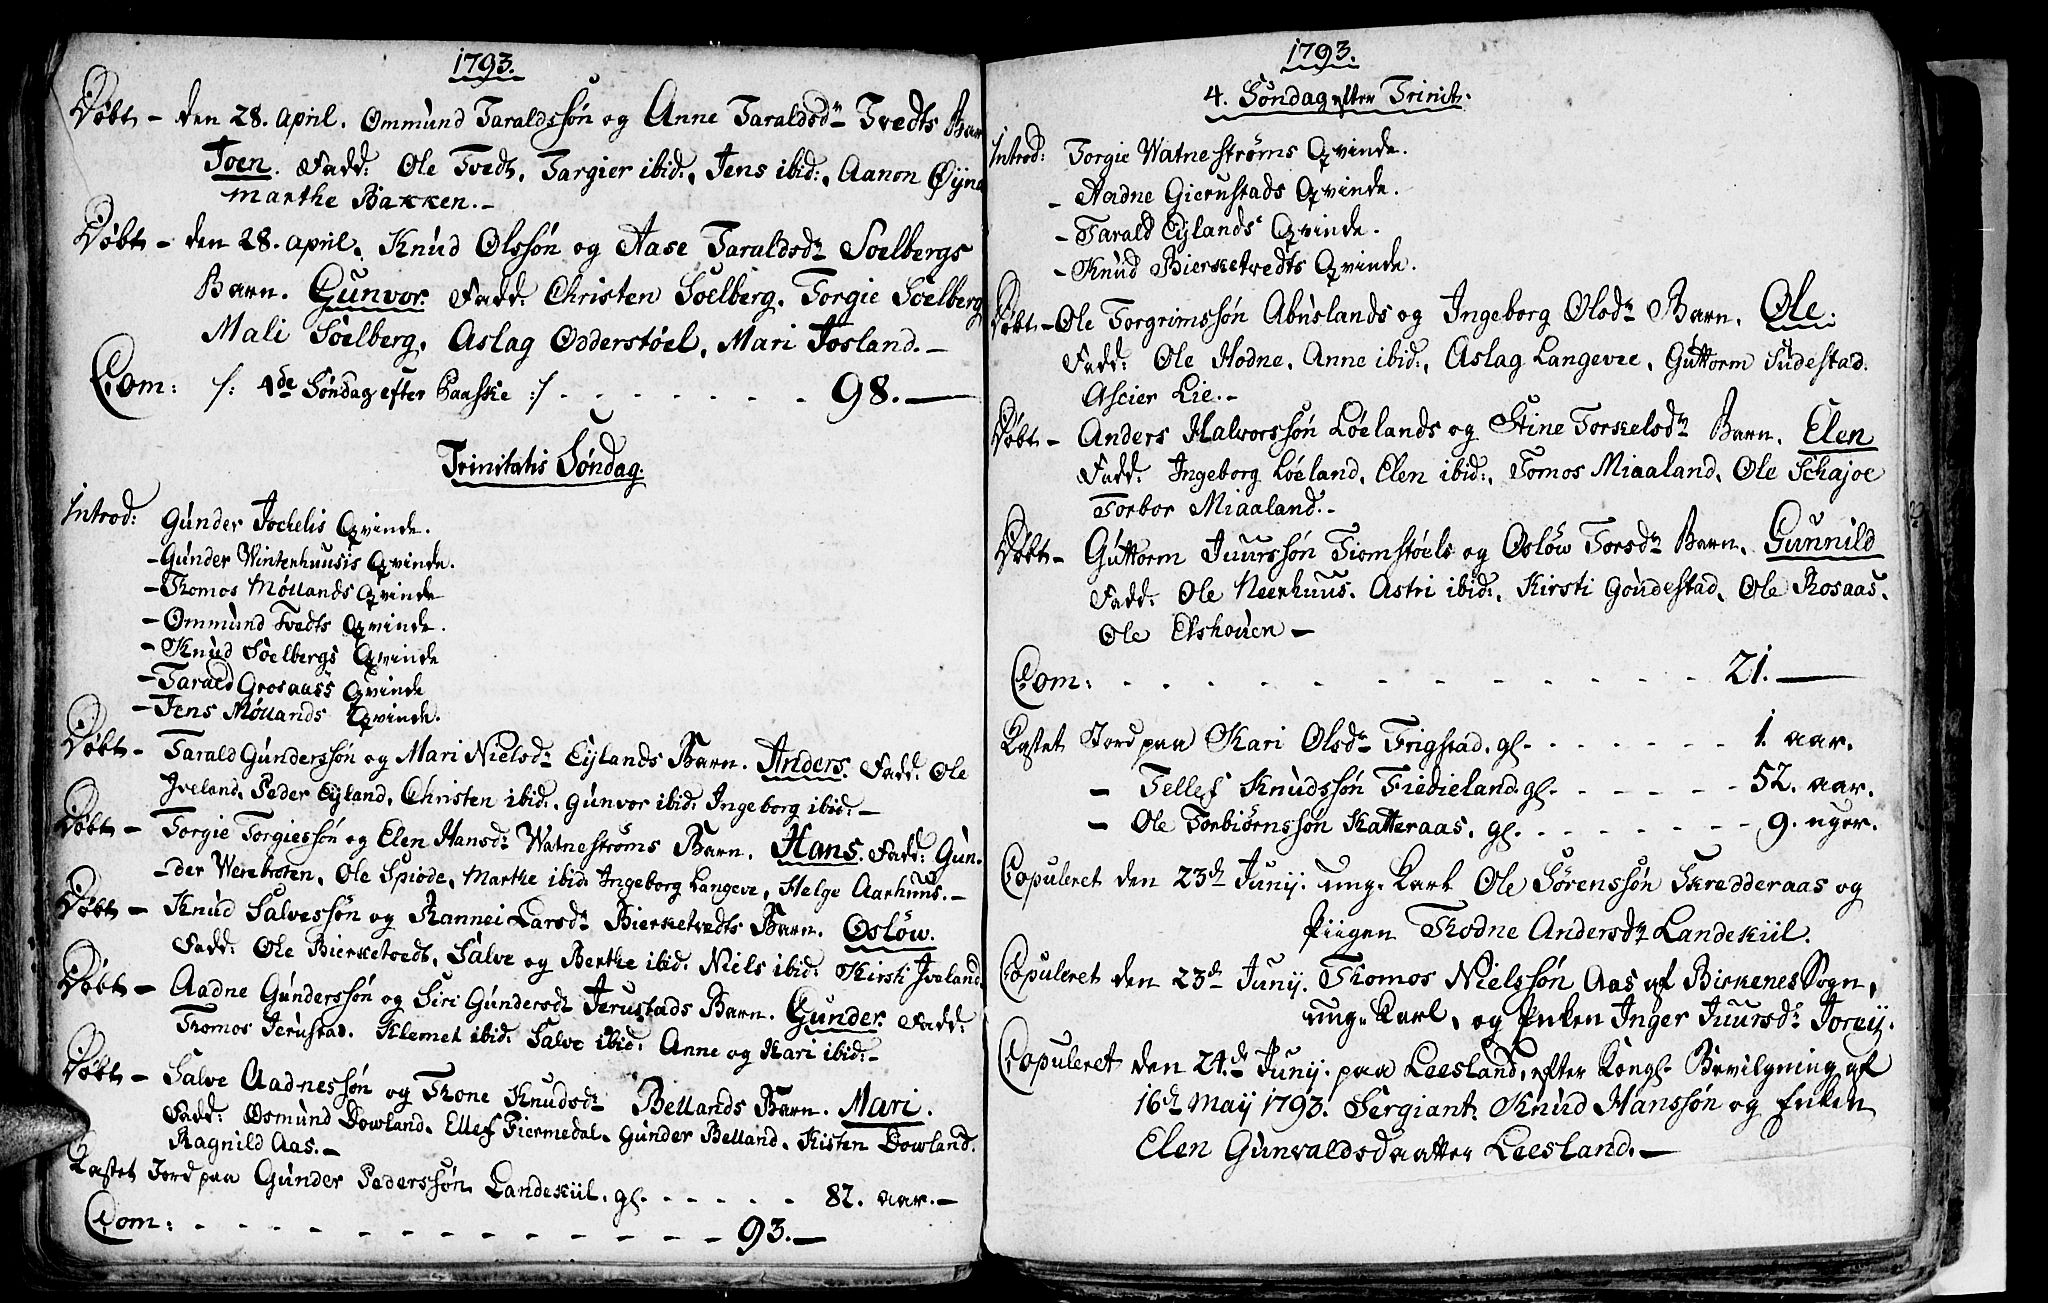 1793.
Døbt – den 28. April. Ommund Taraldssøn og Anne Taraldsdr Tvedts Barn
Joen. Fadd: Ole Tvedt, Targier ibid:, Jens ibid:, Aanon Øyna
Marthe Bakken. –
Døbt – den 28. April. Knud Olssøn og Aase Taraldsdr Soelbergs
Barn. Gunvor. Fadd: Christen Soelberg, Torgie Soelberg
Mali Soelberg, Aslag Odderstøel, Mari Josland. –
Com: /: 4de Søndag efter Paaske :/ - - - - - - - 98. –
Trinitatis Søndag.
Introd: Gunder Jochelis Qvinde.
– Gunder Winterhuusis Qvinde.
– Thomos Møllands Qvinde
– Ommund Tvedts Qvinde.
– Knud Soelbergs Qvinde
– Tarald Grosaass Qvinde
– Jens Møllands Qvinde.
Døbt – Tarald Gunderssøn og Mari Nielsdr Eylands Barn. Anders. Fadd: Ole
Iveland, Peder Eyland, Christen ibid:, Gunvor ibid: Ingeborg ibid: –
Døbt – Torgie Torgiessøn og Elen Hansdr Watnestrøms Barn. Hans. Fadd: Gun-
-der Werebroten, Ole Spiøde, Marthe ibid: Ingeborg Langeve, Helge Aarhuus. –
Døbt – Knud Salvessøn og Rannei Larsdr Bierketvedts Barn. Osløw.
Fadd: Ole Bierketvedt, Salve og Berthe ibid: Niels ibid: Kirsti Iveland.
Døbt – Aadne Gunderssøn og Siri Gundersdr Jerustads Barn. Gunder. Fadd:
Thomos Jerustad. Klemet ibid: Salve ibid: Anne og Kari ibid: –
Døbt – Salve Aadnessøn og Thone Knudsdr Bellands Barn. Mari.
Fadd: Osmund Dowland, Ellef Fiermedal, Gunder Belland, Kisten Dowland.
Ragnild Aas. –
Kastet Jord paa Gunder Pederssøn Landekiil. gl. - - - - - 82. aar. –
Com: - - - - - - - - - - - - 93. –
1793.
4. Søndag efter Trinit:
Introd: Torgie Watnestrøms Qvinde.
– Aadne Gierustads Qvinde.
– Tarald Eylands Qvinde.
– Knud Bierketvedts Qvinde.
Døbt – Ole Torgrimssøn Abuslands og Ingeborg Olsdr Barn. Ole.
Fadd: Ole Hodne, Anne ibid:, Aslag Langevee, Guttorm Sudestad.
Ascier Lie. –
Døbt – Anders Halvorssøn Løelands og Stine Torkelsdr Barn. Elen
Fadd: Ingeborg Løeland, Elen ibid:, Tomos Miaaland, Ole Schajoe
Torbor Miaaland. –
Døbt – Guttorm Juurssøn Fiomstøels og Osløw Torsdr Barn. Gunnild
Fadd: Ole Neerhuus. Astri ibid:, Kirsti Goudestad, Ole Rosaas.
Ole Elshouen –
Com: - - - - - - - - - - - - - - - - 21. –
Kastet Jord paa Kari Olsdr Frigstad. gl. - - - - - - - 1. aar.
– Tellef Knudssøn Fiedieland. gl. - - - - - - 52. aar.
– Ole Torbiørnssøn Katteraas. gl. - - - - - - - 9. uger.
Copuleret den 23de Junij. ung. Karl Ole Sørenssøn Skredderaas og
Piigen Thodne Andersdr Landekiil.
Copuleret den 23de Junij. Thomos Nielssøn Aas af Birkenes Sogn,
ung. Karl, og Enken Inger Juursdr Jorey.
Copuleret den 24de Junij. paa Leesland, efter Kongl. Bevilgning af
16de Maij 1793. Sergiant Knud Hanssøn og Enken
Elen Gunvaldsdaatter Leesland. –